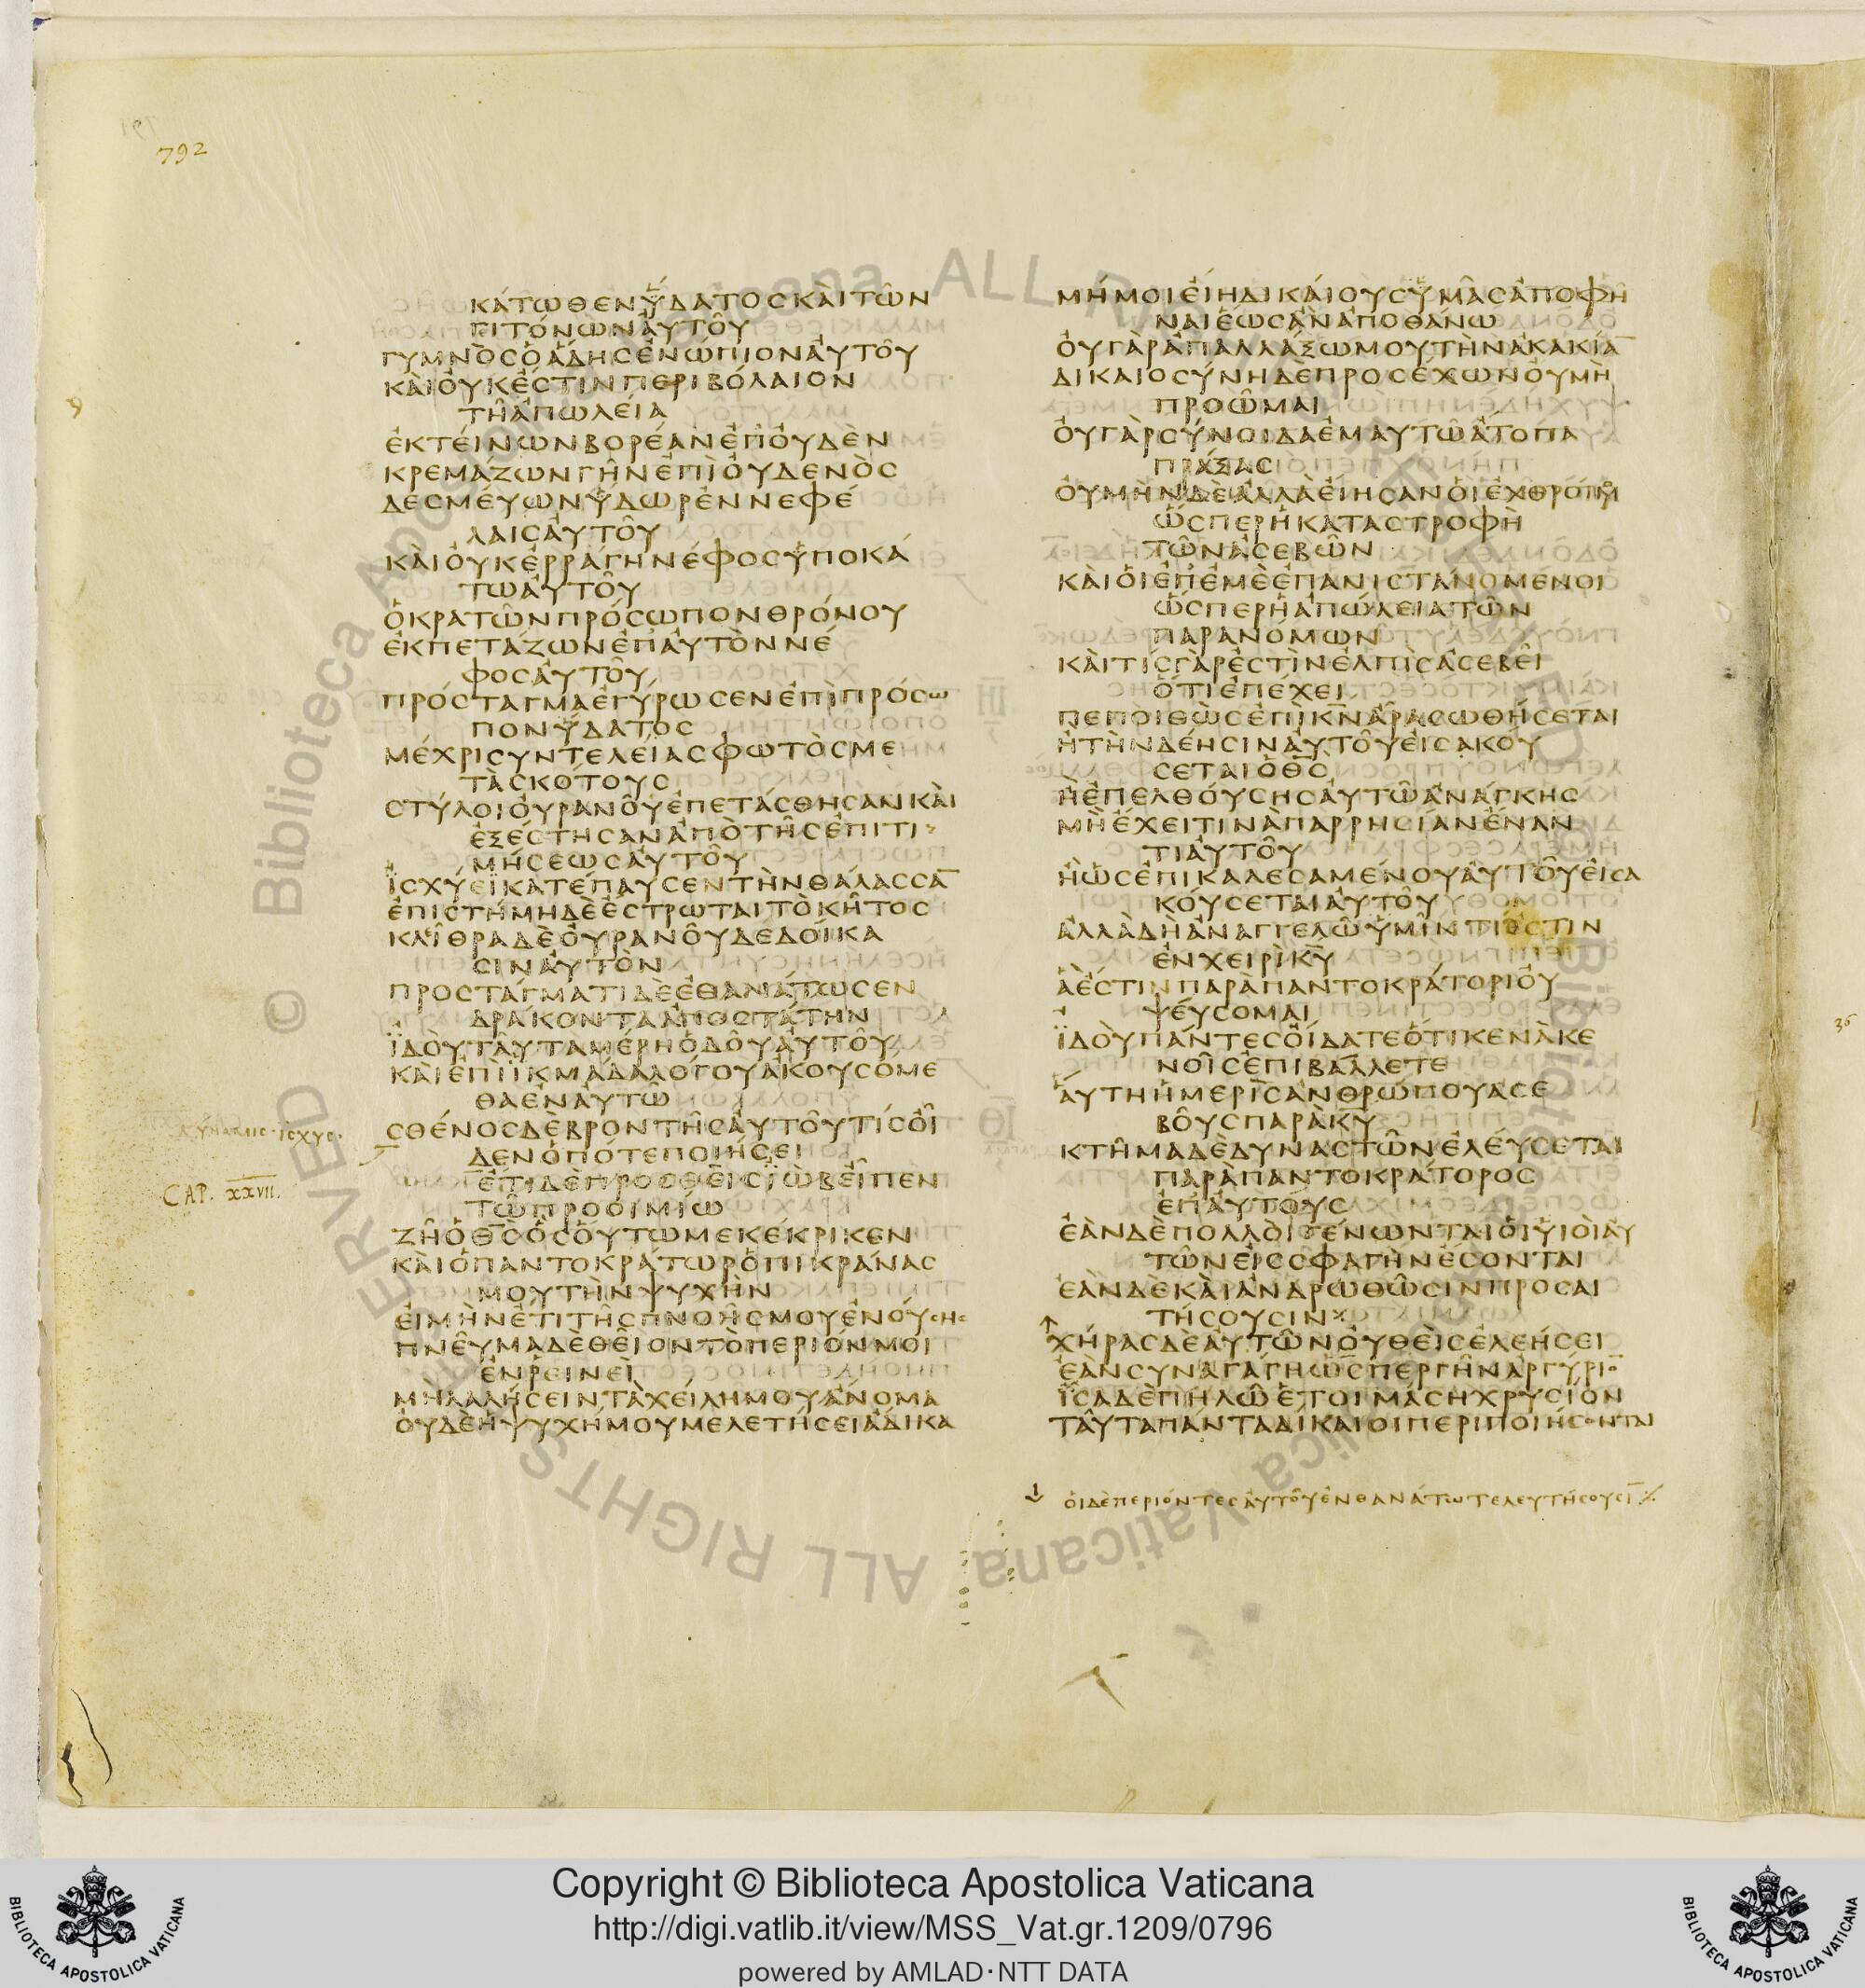 792
κάτωθεν ὕδατοσκαὶτῶν
γιτόνωναὐτοῦ
γυμνὸσὁᾅδησἐνώπιοναὐτοῦ
καὶοὐκἔστινπεριβόλαιον
τῆἀπωλεία
ἐκτείνωνβορέανἐπ᾽οὐδὲν
κρεμάζωνγῆνἐπὶοὐδενὸσ
δεσμεύωνὕδωρἐννεφέ
λαισαὐτοῦ
καὶοὐκἐρράγηνέφοσὑποκά
τωαὐτοῦ
ὁκρατῶνπρόσωπονθρόνου
ἐκπετάζωνἐπ᾽αὐτὸννέ
φοσαὐτοῦ
πρόσταγμαἐγύρωσενἐπὶπρόσω
πονὕδατοσ
μέχρισυντελείασφωτὸσμε
τὰσκότουσ
στύλοιοὐρανοῦἐπετάσθησανκαὶ
ἐξέστησανἀπὸτῆσἐπιτι
μήσεωσαὐτοῦ
ἰσχύεικατέπαυσεντὴνθάλασσα̅
ἐπιστήμηδὲἔστρωταιτὸκῆτοσ
κλεῖθραδὲοὐρανοῦδεδοίκα
σιναὐτὸν
προστάγματιδὲἐθανάτωσεν
δράκονταἀποστάτην
ἰδοὺταῦταμέρηὁδοῦαὐτοῦ
καὶἐπὶἰκμάδαλόγουἀκουσόμε
θαἐναὐτῶ
σθένοσδὲβροντῆσαὐτοῦτίσοἶ
δενὁπότεποιήσει
ἔτιδὲπροσθεὶσἰὼβεἶπεν
τῶπροοιμίω
CAP. XXVII.
ζῆὁθ̅σ̅ὃσοὕτωμεκέκρικεν
καὶὁπαντοκράτωρὁπικράνασ
μουτὴνψυχὴν
εἰμὴνἔτιτῆσπνοῆσμουἐνούσησ
πνεῦμαδὲθεῖοντὸπεριόνμοι
ἐνρεινεὶ
μὴλαλήσειντὰχείλημουάνομα
οὐδὲἡψυχήμουμελετήσειἄδικα
μήμοιείηδικαίουσὑμᾶσἀποφῆ
ναιἕωσἂνἀποθάνω
οὐγὰρἀπαλλάξωμουτὴνἀκακία̅
δικαιοσύνηδὲπροσέχωνοὐμὴ
προῶμαι
οὐγὰρσύνοιδαἐμαυτῶἄτοπα
πράξασ
οὐμὴνδὲἀλλὰείησανοἱἐχθροίμου
ὥσπερἡκαταστροφὴ
τῶνἀσεβῶν
καὶοἱἐπ᾽ἐμὲἐπανιστανόμενοι
ὥσπερἡἀπώλειατῶν
παρανόμων
καὶτίσγὰρἐστὶνἐλπὶσἀσεβεῖ
ὅτιἐπέχει
πεποιθὼσἐπὶκ̅ν̅ἆρασωθήσεται
ἢτὴνδέησιναὐτοῦεἰσακού
σεταιὁθ̅σ̅
ἢἐπελθούσησαὐτῶἀνάγκησ
μὴἔχειτινὰπαρρησίανἔναν
τιαὐτοῦ
ἢὡσἐπικαλεσαμένουαὐτοῦεἰσα
κούσεταιαὐτοῦ
ἀλλὰδὴἀναγγελῶὑμῖντίἐστιν
ἐνχειρὶκ̅υ̅
ἅἐστινπαρὰπαντοκράτοριοὐ
ψεύσομαι
ἰδοὺπάντεσοἴδατεὅτικενὰκε
νοῖσἐπιβάλλετε
αὕτηἡμερὶσἀνθρώπουασε
βοῦσπαρὰκ̅υ̅
κτῆμαδὲδυναστῶνἐλεύσεται
παρὰπαντοκράτοροσ
ἐπ᾽αὐτούσ
ἐὰνδὲπολλοὶγένωνταιοἱυἱοὶαὐ
τῶνεἰσσφαγὴνέσονται
ἐὰνδὲκαὶἀνδρωθῶσινπροσαι
τήσουσιν
χήρασδὲαὐτῶνοὐθεὶσἐλεήσει
ἐὰνσυναγάγηὥσπεργῆνἀργύριο̅
ἴσαδὲπηλῶἑτοιμάσηχρυσίον
ταῦταπάνταδίκαιοιπεριποιήσονται
οἱδὲπεριόντεσαὐτοῦἐνθανάτωτελευτήσουσι̅
Copyright © Biblioteca Apostolica Vaticana
http://digi.vatlib.it/view/MSS_Vat.gr.1209/0796
powered by AMLAD·NTT DATA
BIBLIOTECA APOSTOLICA VATICANA
BIBLIOTECA APOSTOLICA VATICANA